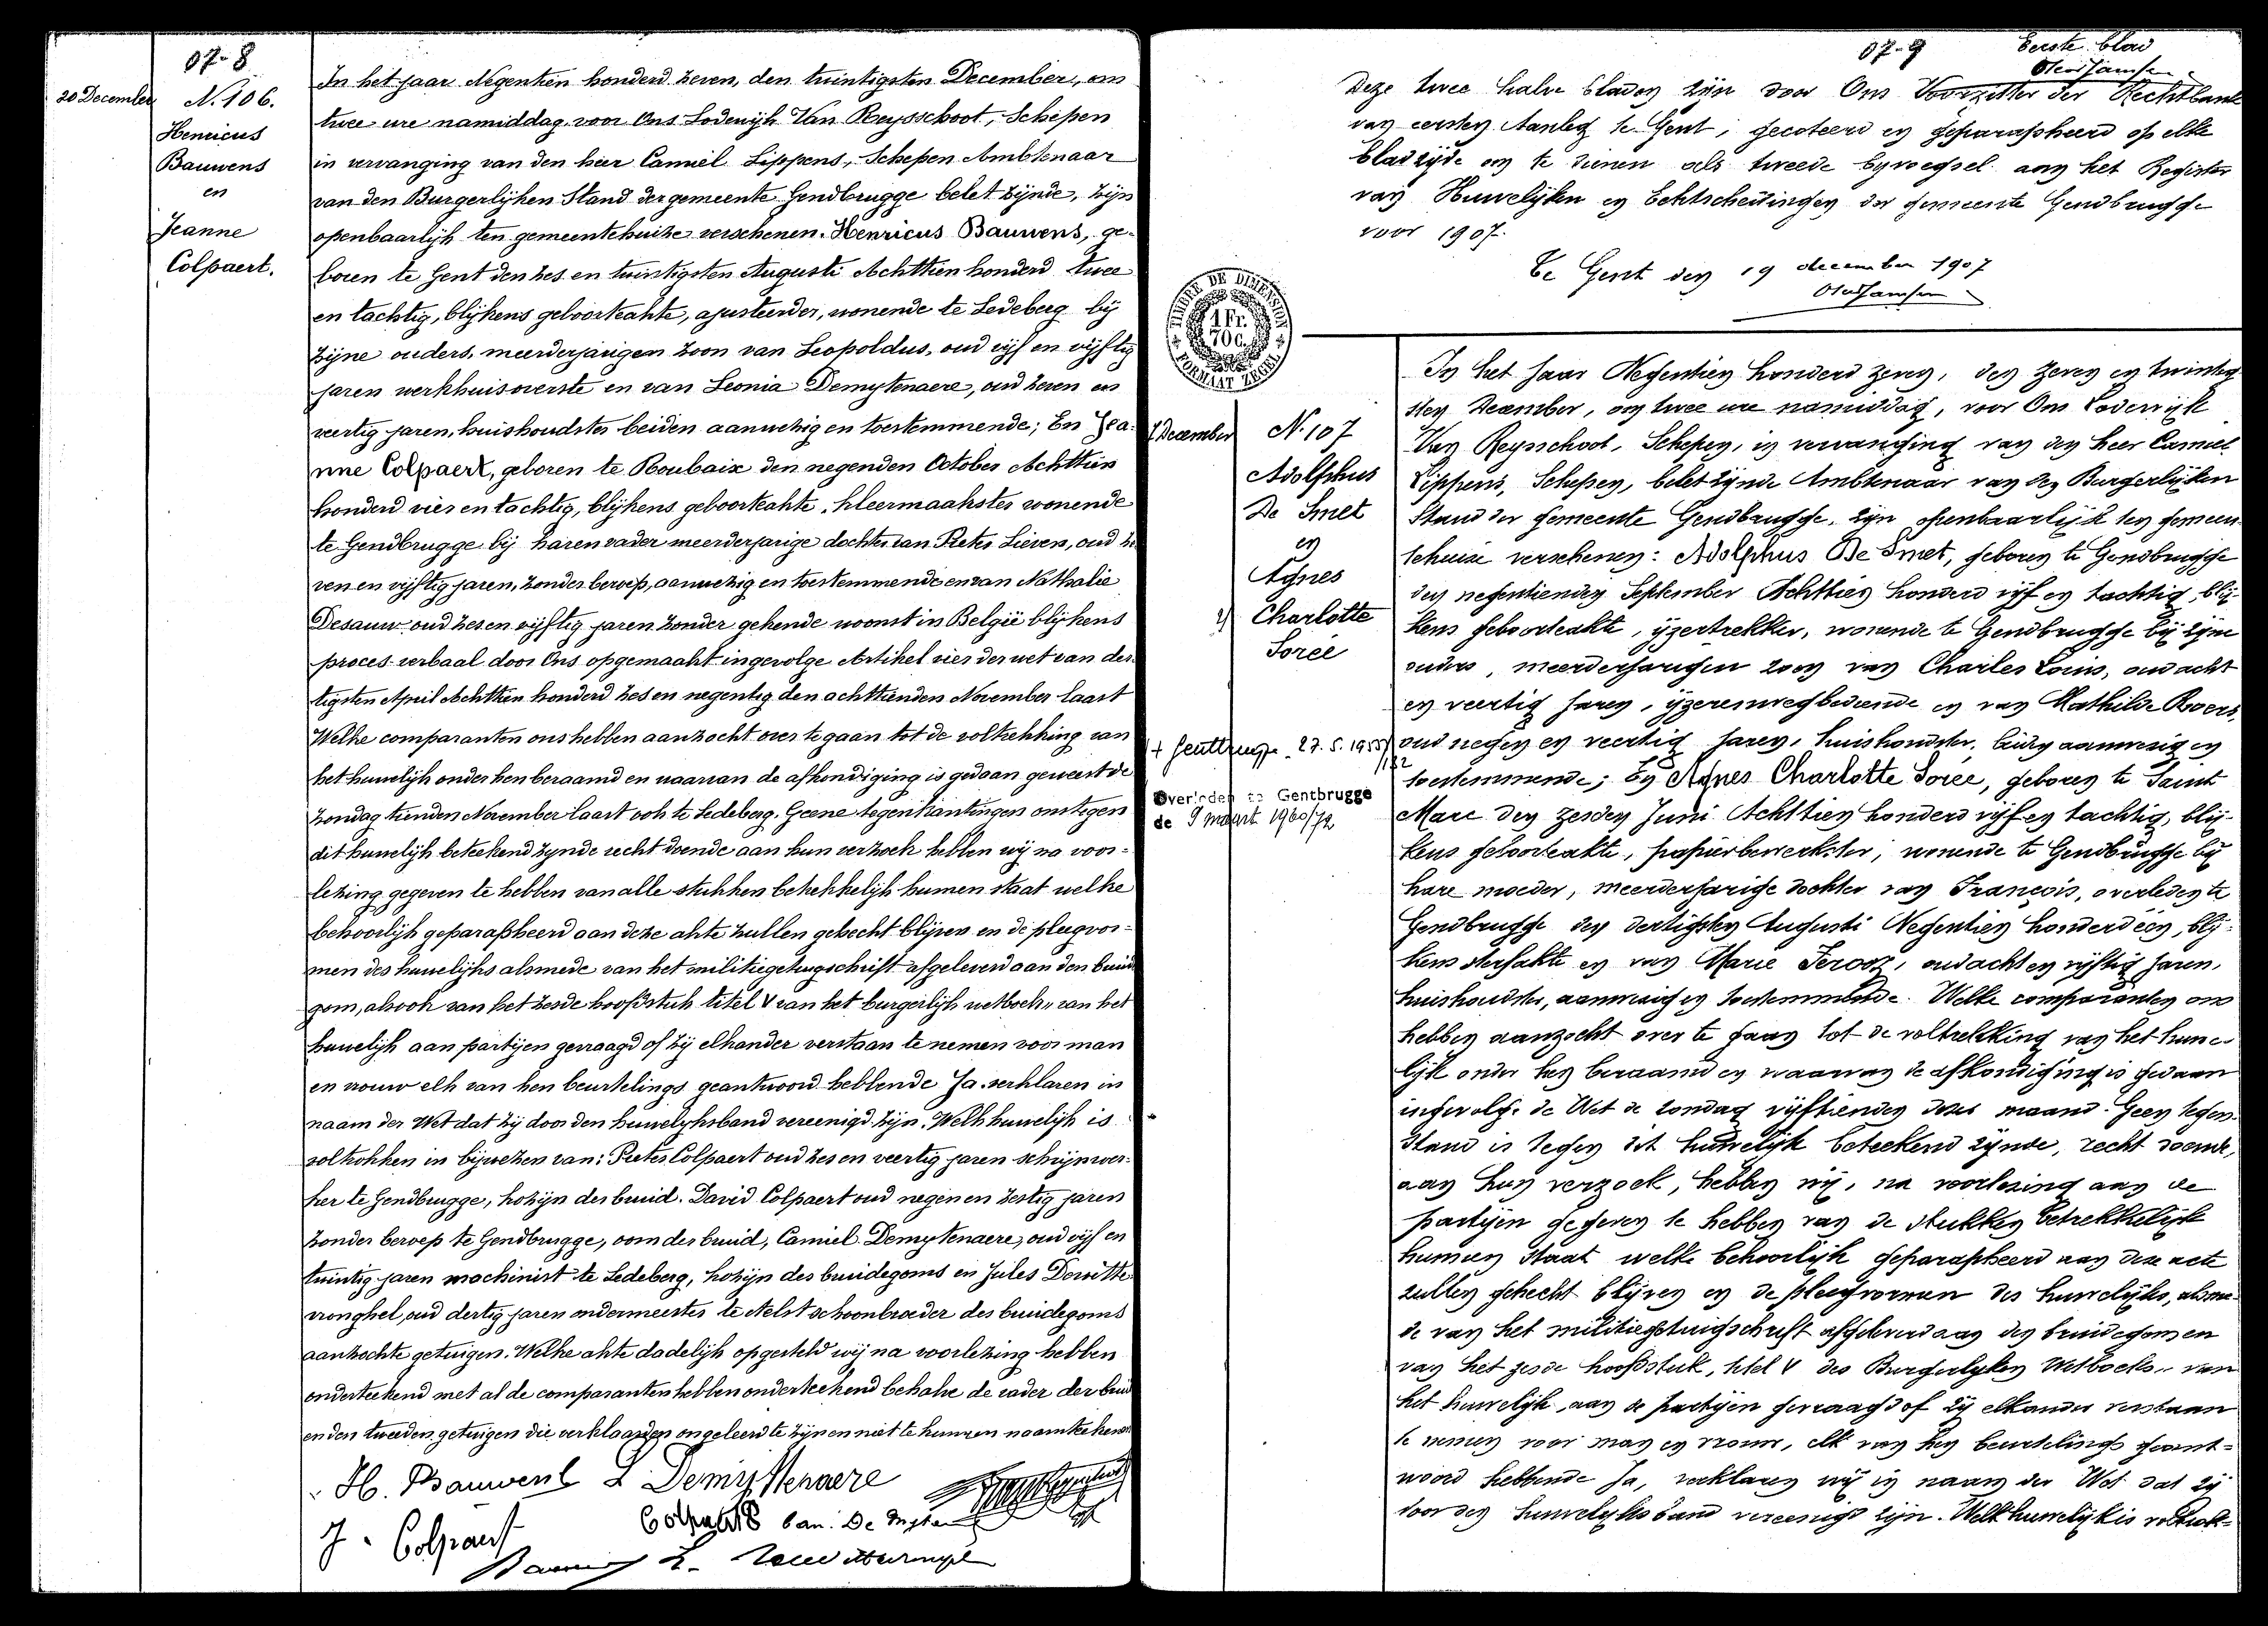 07-8
20 December
N. 106.
Henricus
Bauwens
en
Jeanne
Colpaert.
In het jaar Negentien honderd zeven, den twintigsten December, om
twee ure namiddag, voor Ons Lodewijk Van Reysschoot, Schepen
in vervanging van den heer Camiel Lippens, Schepen Ambtenaar
van den Burgerlijken Stand der gemeente Gendbrugge belet zijnde, zijn
openbaarlijk ten gemeentehuize verschenen. Henricus Bauwens, ge-
boren te Gent den zes en twintigsten Augusti Achttien honderd twee
en tachtig, blijkens geboorteakte, ajusteerder, wonende te Ledeberg bij
zijne ouders, meerderjarigen zoon van Leopoldus, oud vijf en vijftig
jaren werkhuisoverste en van Leonia Demytenaere, oud zeven en
veertig jaren, huishoudster beiden aanwezig en toestemmende; En Jea-
nne Colpaert, geboren te Roubaix den negenden October Achttien
honderd vier en tachtig, blijkens geboorteakte, kleermaakster wonende
te Gendbrugge bij haren vader meerderjarige dochter van Pieter Lieven, oud ze
ven en vijftig jaren, zonder beroep, aanwezig en toestemmende en van Nathalie
Desauw oud zes en vijftig jaren zonder gekende woonst in België blijkens
proces-verbaal door Ons opgemaakt ingevolge Artikel vier der wet van der
tigsten April Achttien honderd zes en negentig den achttienden November laatst
Welke comparanten ons hebben aanzocht over te gaan tot de voltrekking van
het huwelijk onder hen beraamd en waarvan de afkondiging is gedaan geweest de
zondag tienden November laatst ook te Ledeberg. Geene tegenkantingen omtegen
dit huwelijk beteekend zynde recht doende aan hun verzoek hebben wij na voor-
lezing gegeven te hebben van alle stukken betrekkelijk hunnen staat welke
behoorlijk geparapheerd aan deze akte zullen gehecht blijven en de pleegvor-
men des huwelijks alsmede van het militiegetugschrift afgeleverd aan den bruid
gom, alsook van het zesde hoofdstuk titel V van het burgerlijk wetboek "van het
huwelijk aan partijen gevraagd of zij elkander verstaan te nemen voor man
en vrouw elk van hen beurtelings geantwoord hebbende Ja. verklaren in
naam der Wet dat zij door den huwelyksband vereenigd zijn. Welk huwelijk is
voltrokken in bijwezen van: Pieter Colpaert oud zes en veertig jaren schrijnwer-
ker te Gendbrugge, kozijn der bruid. David Colpaert oud negen en zestig jaren
zonder beroep te Gendbrugge, oom der bruid, Camiel Demytenaere, oud vijf en
twintig jaren machinist te Ledeberg, kozijn des bruidegoms en Jules Dewitte
vronghel, oud dertig jaren ondermeester te Aelst schoonbroeder des bruidegoms
aanzochte getuigen. Welke akte dadelijk opgesteld wij na voorlezing hebben
onderteekend met al de comparanten hebben onderteekend behalve de vader der bruid
en den tweeden getuigen die verklaarden ongeleerd te zijn en niet te kunnen naamteekenen
H. Bauwens L Demyttenaere
J. Colpaert Colpaert P Cam. De Myten
07-9
Eerste blad
Deze twee halve bladen zijn door Ons Voorzitter der Rechtbank
van eersten Aanleg te Gent, gecoteerd en geparapheerd op elke
bladzijde om te dienen als tweede byvoegsel aan het Register
van Huwelijken en Echtscheidingen der gemeente Gendbrugge
voor 1907.
Te Gent den 19 december 1907
TIMBRE DE DIMENSION
1 Fr.
70 c.
FORMAAT ZEGEL
7 December
N. 107
Adolphus
De Smet
en
Agnes
Charlotte
Sorée
+ Gentbrugge 27.5.1955/
132
Overleden te Gentbrugge
de 9 maart 1960/72
In het Jaar Negentien honderd zeven, den zeven en twintig
sten December, om twee ure namiddag, voor Ons Lodewijk
Van Reysschoot, Schepen, in vervanging van den heer Camiel
Lippens, Schepen, belet zijnde Ambtenaar van den Burgerlijken
Stand der gemeente Gendbrugge, zijn openbaarlijk ten gemeen
tehuize verschenen: Adolphus De Smet, geboren te Gendbrugge
den negentienden September Achttien honderd vijf en tachtig, blij-
kens geboorteakte, ijzertrekker, wonende te Gendbrugge bij zijne
ouders, meerderjarigen zoon van Charles Louis, oud acht
en veertig jaren, ijzerenwegbediende en van Mathilde Roers,
oud negen en veertig jaren, huishoudster, beiden aanwezig en
toestemmende; En Agnes Charlotte Sorée, geboren te Saint
Marc den zesden Juni Achttien honderd vijf en tachtig, blij-
kens geboorteakte, papierbewerkster, wonende te Gendbrugge bij
hare moeder, meerderjarige dochter van François, overleden te
Gendbrugge den dertigsten Augusti Negentien honderd één, blij-
kens sterfakte en van Marie Ferooz, oud acht en vijftig jaren,
huishoudster, aanwezig en toestemmende. Welke comparanten ons
hebben aanzocht over te gaan tot de voltrekking van het huwe-
lijk onder hen beraamd en waarvan de afkondiging is gedaan
ingevolge de Wet de zondag vijftienden dezer maand. Geen tegen-
stand is tegen dit huwelijk beteekend zijnde, recht doende,
aan hun verzoek, hebben wij, na voorlezing aan de
partijen gegeven te hebben van de stukken betrekkelijk
hunnen staat welke behoorlijk geparapheerd aan deze acte
zullen gehecht blijven en de pleegvormen des huwelijks, alsme-
de van het militiegetuigschrift afgeleverd aan den bruidegom en
van het zesde hoofdstuk, titel V des Burgerlyken Wetboeks "van
het huwelijk, aan de partijen gevraagd of zij elkander verstaan
te nemen voor man en vrouw, elk van hen beurtelings geant-
woord hebbende Ja, verklaren wij in naam der Wet dat zij
door den huwelyksband vereenigd zijn. Welk huwelijk is voltrok-